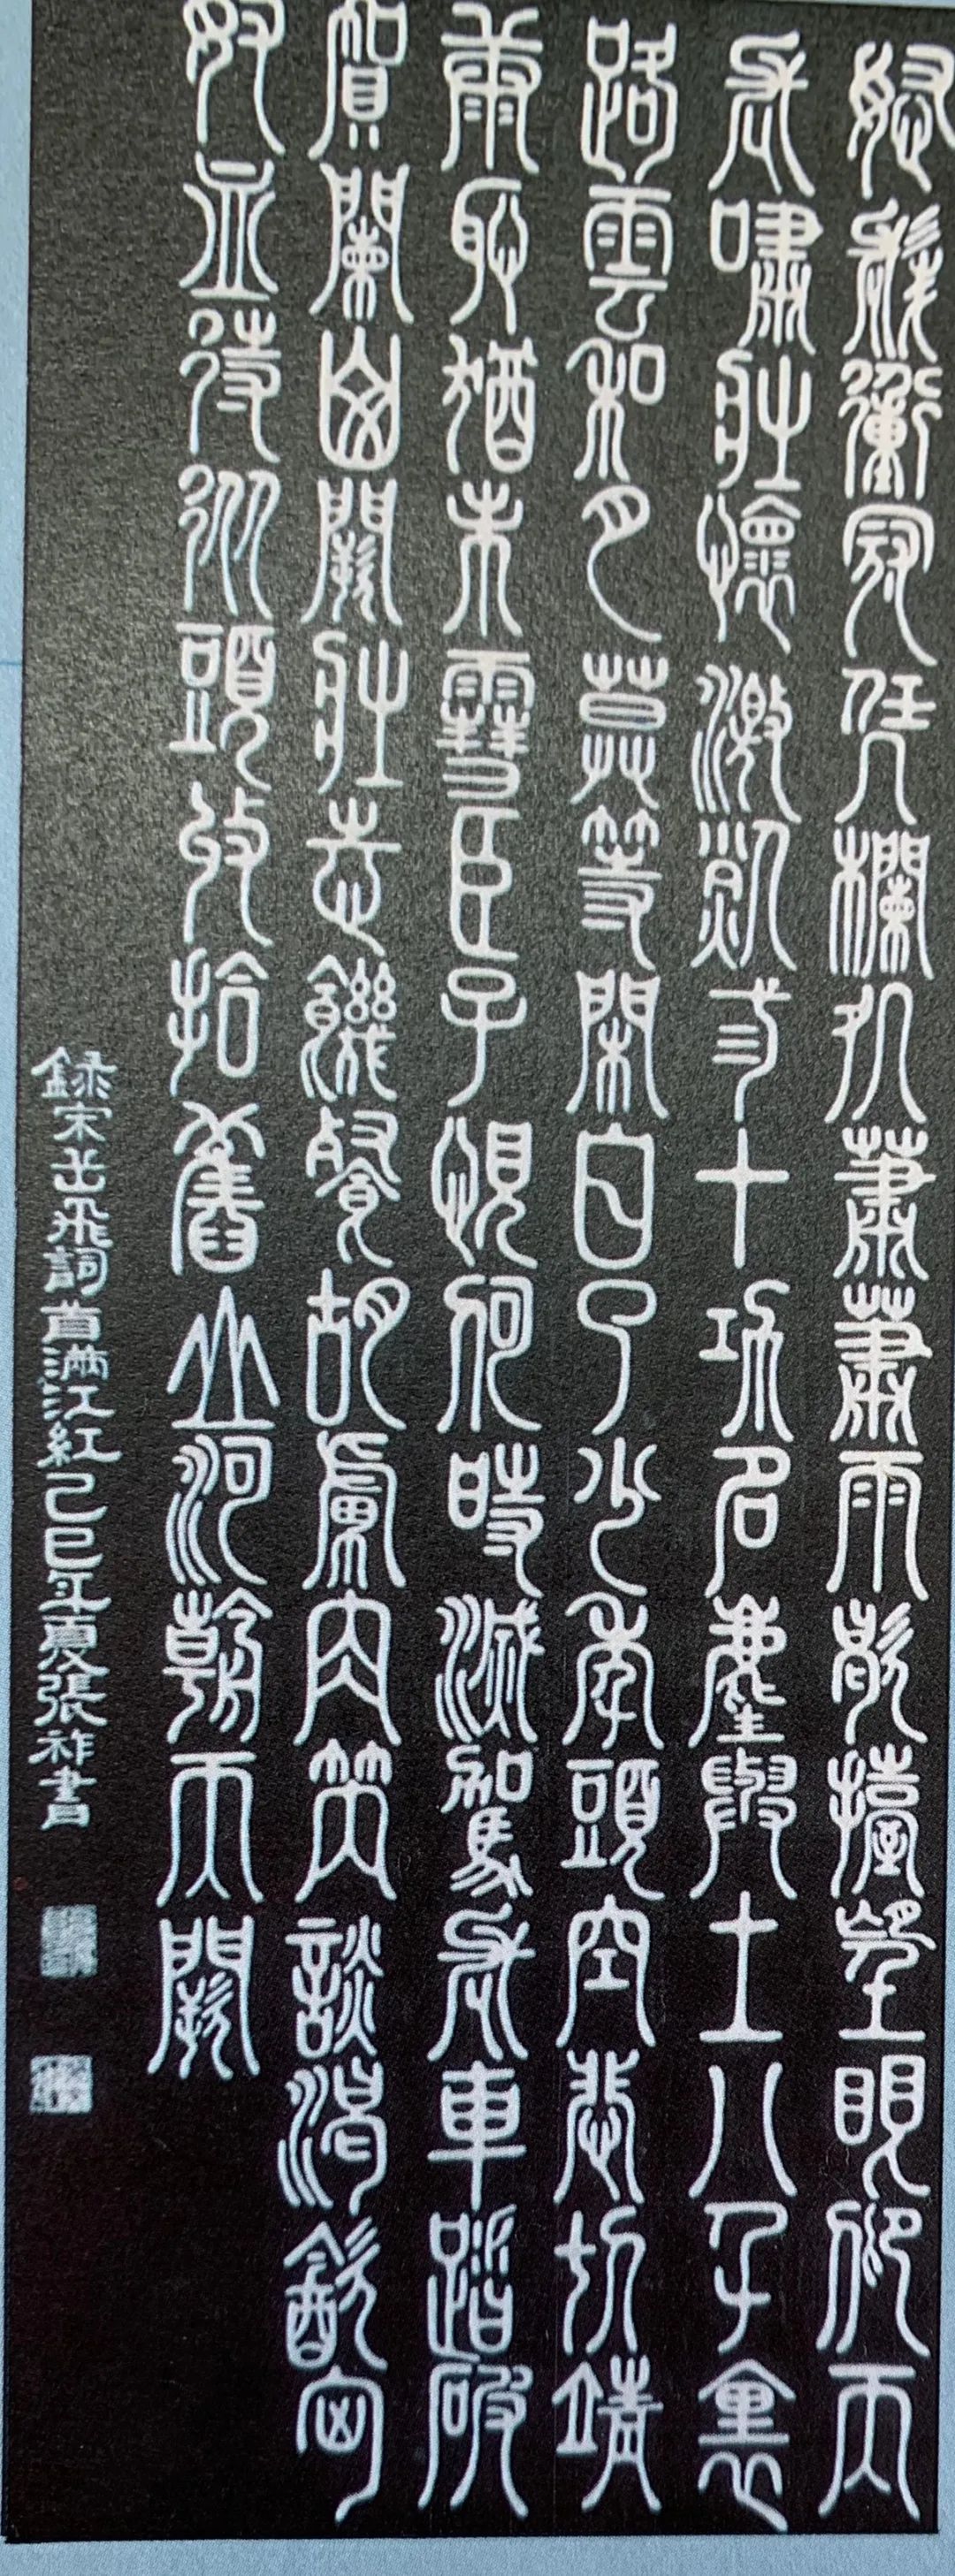 怒髮衝冠凭欄処蕭蕭雨歇擡望眼仰天
長嘯壯懷激烈弎十功名塵與土八千裏
路雲和月莫等閑白了少年頭空悲切靖
康恥猶未雪臣子恨何時滅駕長車踏破
賀蘭山闕壯志饑餐胡虜肉笑談渴飲匈
奴血待從頭收拾舊山河朝天闕
録宋岳飛詞首滿江紅己巳年夏張祚書